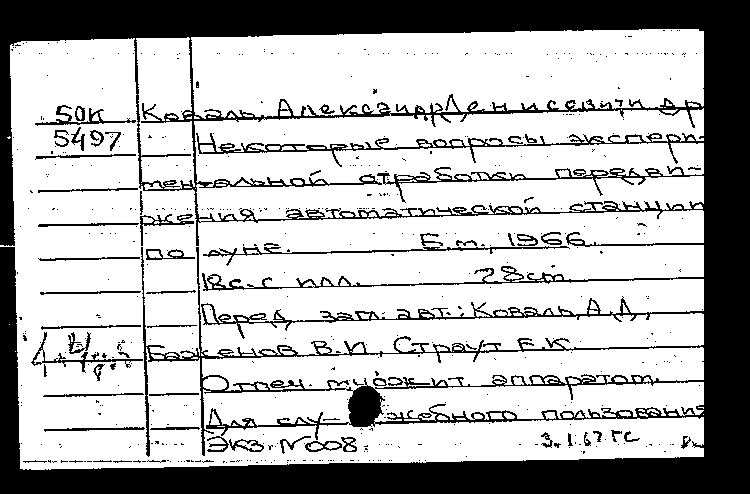 50К Коваль, Александр Денисевич и др
5497 Некоторые вопросы экспери-
ментальной отработки передви-
жения автоматической станции
по луне. Б.м., 1966.
18с. с илл. 28cm
Перед загл. авт.: Коваль, А.Д.,
Баженов В.И., Страут Е.К.
Отпеч. множит. аппаратом.
Для служебного пользования
Экз. №008. 3.1.67 ГС